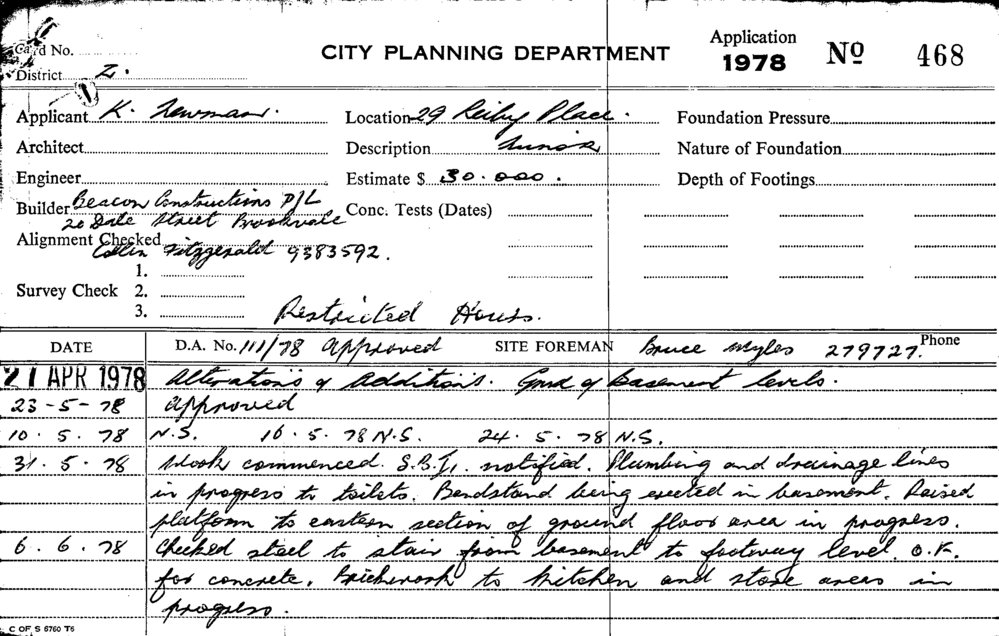 Card No.
CITY PLANNING DEPARTMENT
Application
1978
No 468
District Z.
Applicant K. Newman.
Location 29 Reiby Place.
Foundation Pressure
Architect
Description Minor
Nature of Foundation
Engineer
Estimate $ 30.000.
Depth of Footings
Builder Beacon Constructions P/L
20 Dale Street Brookvale
Conc. Tests (Dates)
Alignment Checked
Collin Fitzgerald 9383592.
1.
Survey Check 2.
3.
Restricted Hours.
DATE
D.A. No. 111/78 Approved
SITE FOREMAN Bruce Myles 279727.
Phone
21 APR 1978 Alterations & Additions. Grnd & basement levels.
23-5-78 Approved
10.5.78 N.S. 16.5.78 N.S. 24.5.78 N.S.
31.5.78 Work commenced. S.B.I. notified. Plumbing and drainage lines
in progress to toilets. Bandstand being erected in basement. Raised
platform to eastern section of ground floor area in progress.
6.6.78 Checked steel to stair from basement to footway level. O.K.
for concrete. Brickwork to kitchen and store areas in
progress.
C OF S 5760 T6